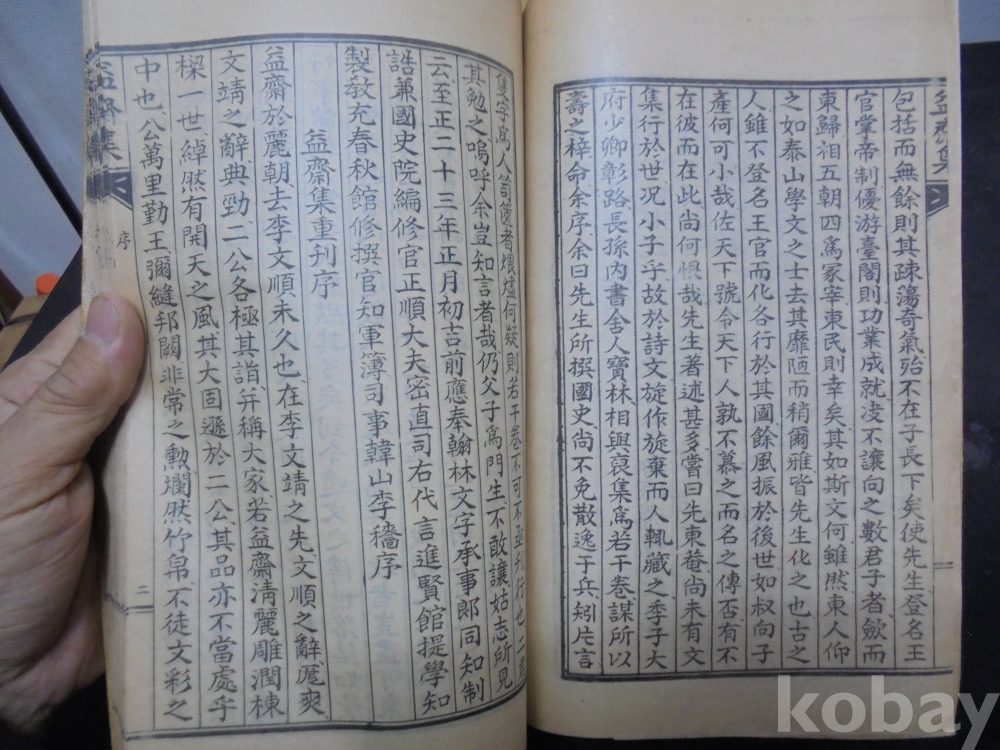 包括而無餘則其疎蕩奇氣殆不在子長下矣使先生登名王
官掌帝制優游臺閣則功業成就決不讓向之數君子者歛而
東歸相五朝四爲冢宰東民則幸矣其如斯文何雖然東人仰
之如泰山學文之士去其靡陋而稍爾雅皆先生化之也古之
人雖不登名王官而化各行於其國餘風振於後世如叔向子
產何可小哉佐天下號令天下人孰不慕之而名之傳否有不
在彼而在此尚何恨哉先生著述甚多嘗曰先東菴尚未有文
集行於世況小子乎故於詩文旋作旋棄而人輒藏之季子大
府少卿彰路長孫內書舍人寶林相與裒集爲若干卷謀所以
壽之梓命余序余曰先生所撰國史尚不免散逸于兵矧片言
隻字爲人笥篋者煨燼何疑則若干卷不可不亟刊行也二
其勉之嗚呼余豈知言者哉仍父子爲門生不敢讓姑志所見
云至正二十三年正月初吉前應奉翰林文字承事郞同知制
誥兼國史院編修官正順大夫密直司右代言進賢館提學知
製敎充春秋館修撰官知軍簿司事韓山李穡序
益齋集重刊序
益齋於麗朝去李文順未久也在李文靖之先文順之辭厖爽
文靖之辭典勁二公各極其詣并稱大家若益齋淸麗雕潤棟
樑一世綽然有開天之風其大固遜於二公其品亦不當處乎
中也公萬里勤王彌縫邦闕非常之勳爛然竹帛不徒文彩之
益齋集
序
二
益齋集
kobay